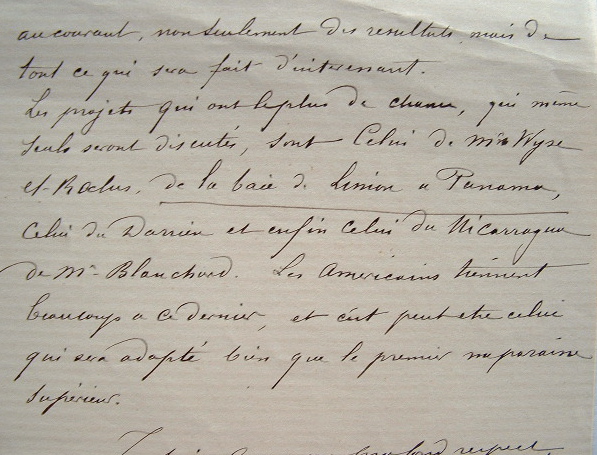 au courant, non seulement des resultats mais de
tout ce qui sera fait d'interessant.
Les projets qui ont le plus de chance, qui même
seuls seront discutés, sont Celui de Mrs Wyse
et Reclus, de la baie de Limon a Panama,
celui du Darrien et enfin celui du Nicarragua
de Mr Blanchard. Les Américains tiennent
beaucoup a ce dernier, et c'est peut etre celui
qui sera adopté bien que le premier me paraisse
supérieur.
respect,